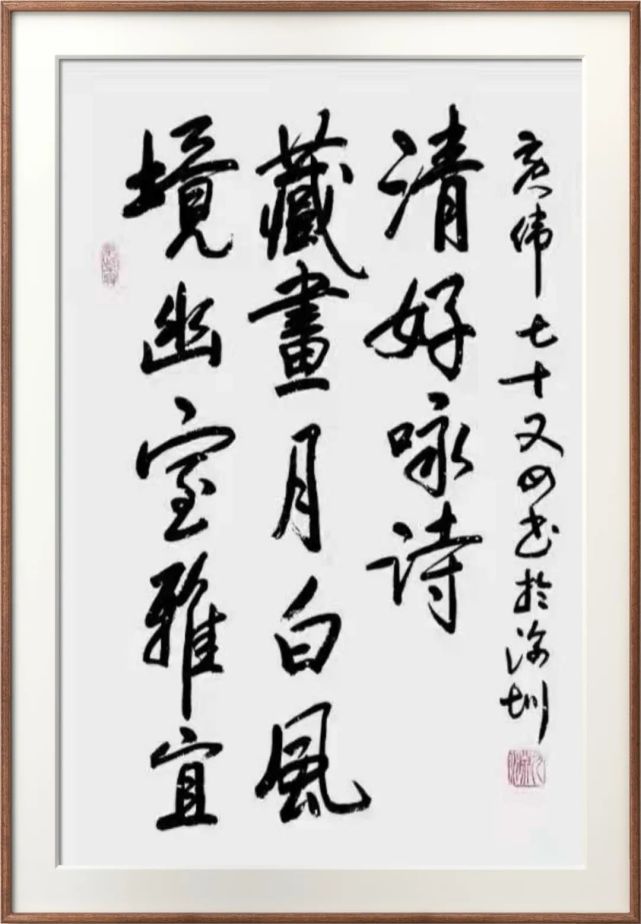 境幽室雅宜
藏畫月白風
清好咏詩
偉七十又四书於深圳